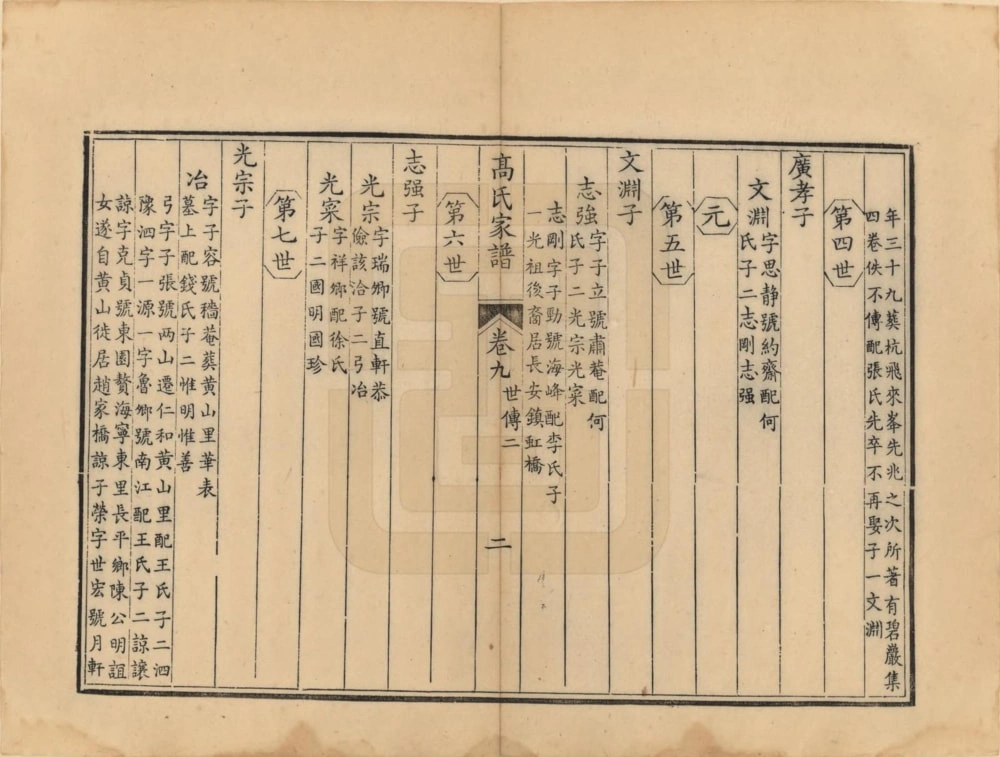 年三十九葬杭飛來峯先兆之次所著有碧巖集
四卷佚不傳配張氏先卒不再娶子一文淵
第四世
廣孝子
文淵字思静號約齋配何
氏子二志剛志强
元
第五世
文淵子
志強字子立號肅菴配何
氏子二光宗光寀
志剛字子勁號海峰配李氏子
一光祖後裔居長安鎮虹橋
髙氏家譜
卷九
世傳二
二
第六世
志强子
光宗字瑞卿號直軒恭
儉該洽子二弓冶
光寀字祥卿配徐氏
子二國明國珍
第七世
光宗子
冶字子容號穡菴葬黄山里華表
墓上配錢氏子二惟明惟善
弓字子張號两山遷仁和黄山里配王氏子二泗
隊泗字一源一字魯卿號南江配王氏子二諒讓
諒字克貞號東園贅海寧東里長平鄉陳公明誼
女遂自黄山徙居趙家橋諒子榮字世宏號月軒